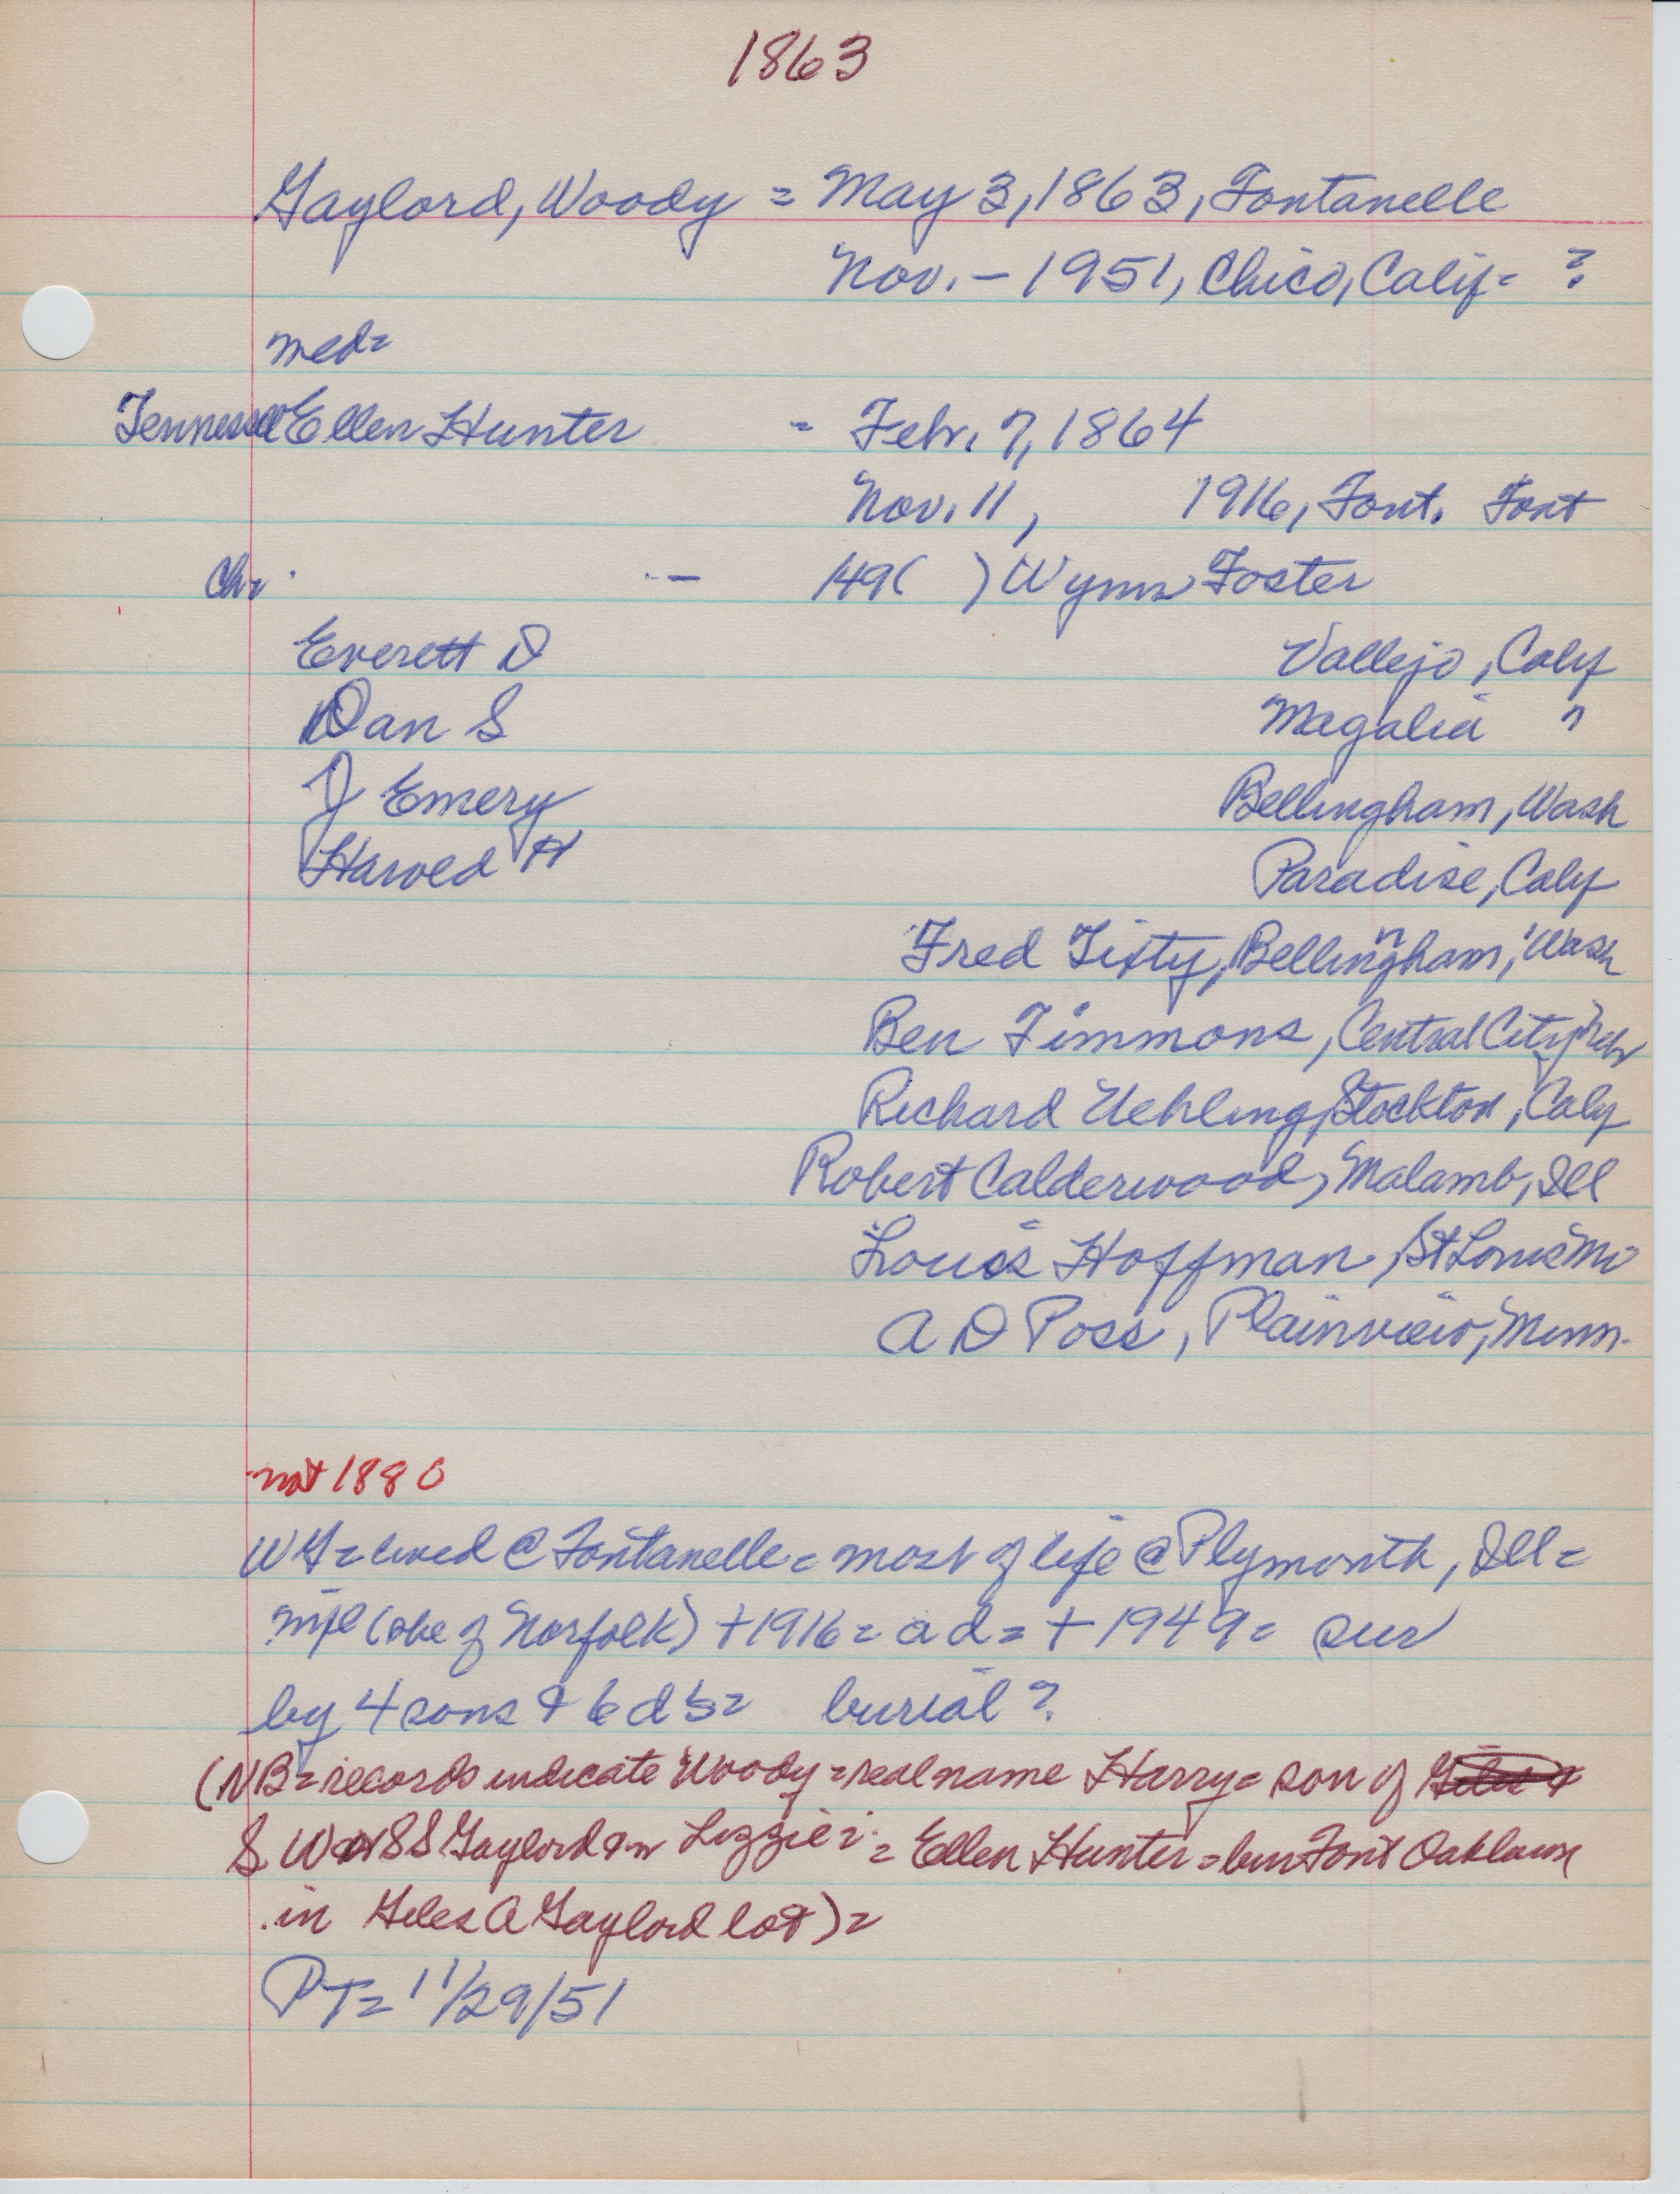 1863
Gaylord, Woody = May 3, 1863, Fontanelle
Nov. - 1951, Chico, Calif = ?
med=
Tennessee Ellen Hunter = Febr. 7, 1864
Nov. 11, 1916, Font. Font
Ch= - 149( ) Wynn Foster
Everett D Vallejo, Calif
Dan S Magalia "
J Emery Bellingham, Wash
Harold H Paradise, Calif
Fred Tixty, Bellingham, Wash
Ben Timmons, Central City, Nebr
Richard Uehling, Stockton, Calif
Robert Calderwood, Malamb, Ill
Louis Hoffman, St Louis Mo
A D Poss, Plainview, Minn.
not 1880
WG = lived @ Fontanelle = most of life @ Plymouth, Ill =
(she of Norfolk) + 1916 = a d = + 1949 = sur
by 4 sons & 6 d's = burial ?
(NB = records indicate Woody = real name Harry = son of Giles &
S W or S S Gaylord & Lizzie = Ellen Hunter = bur Font Oaklawn
in Giles A Gaylord lot) =
PT = 11/29/51